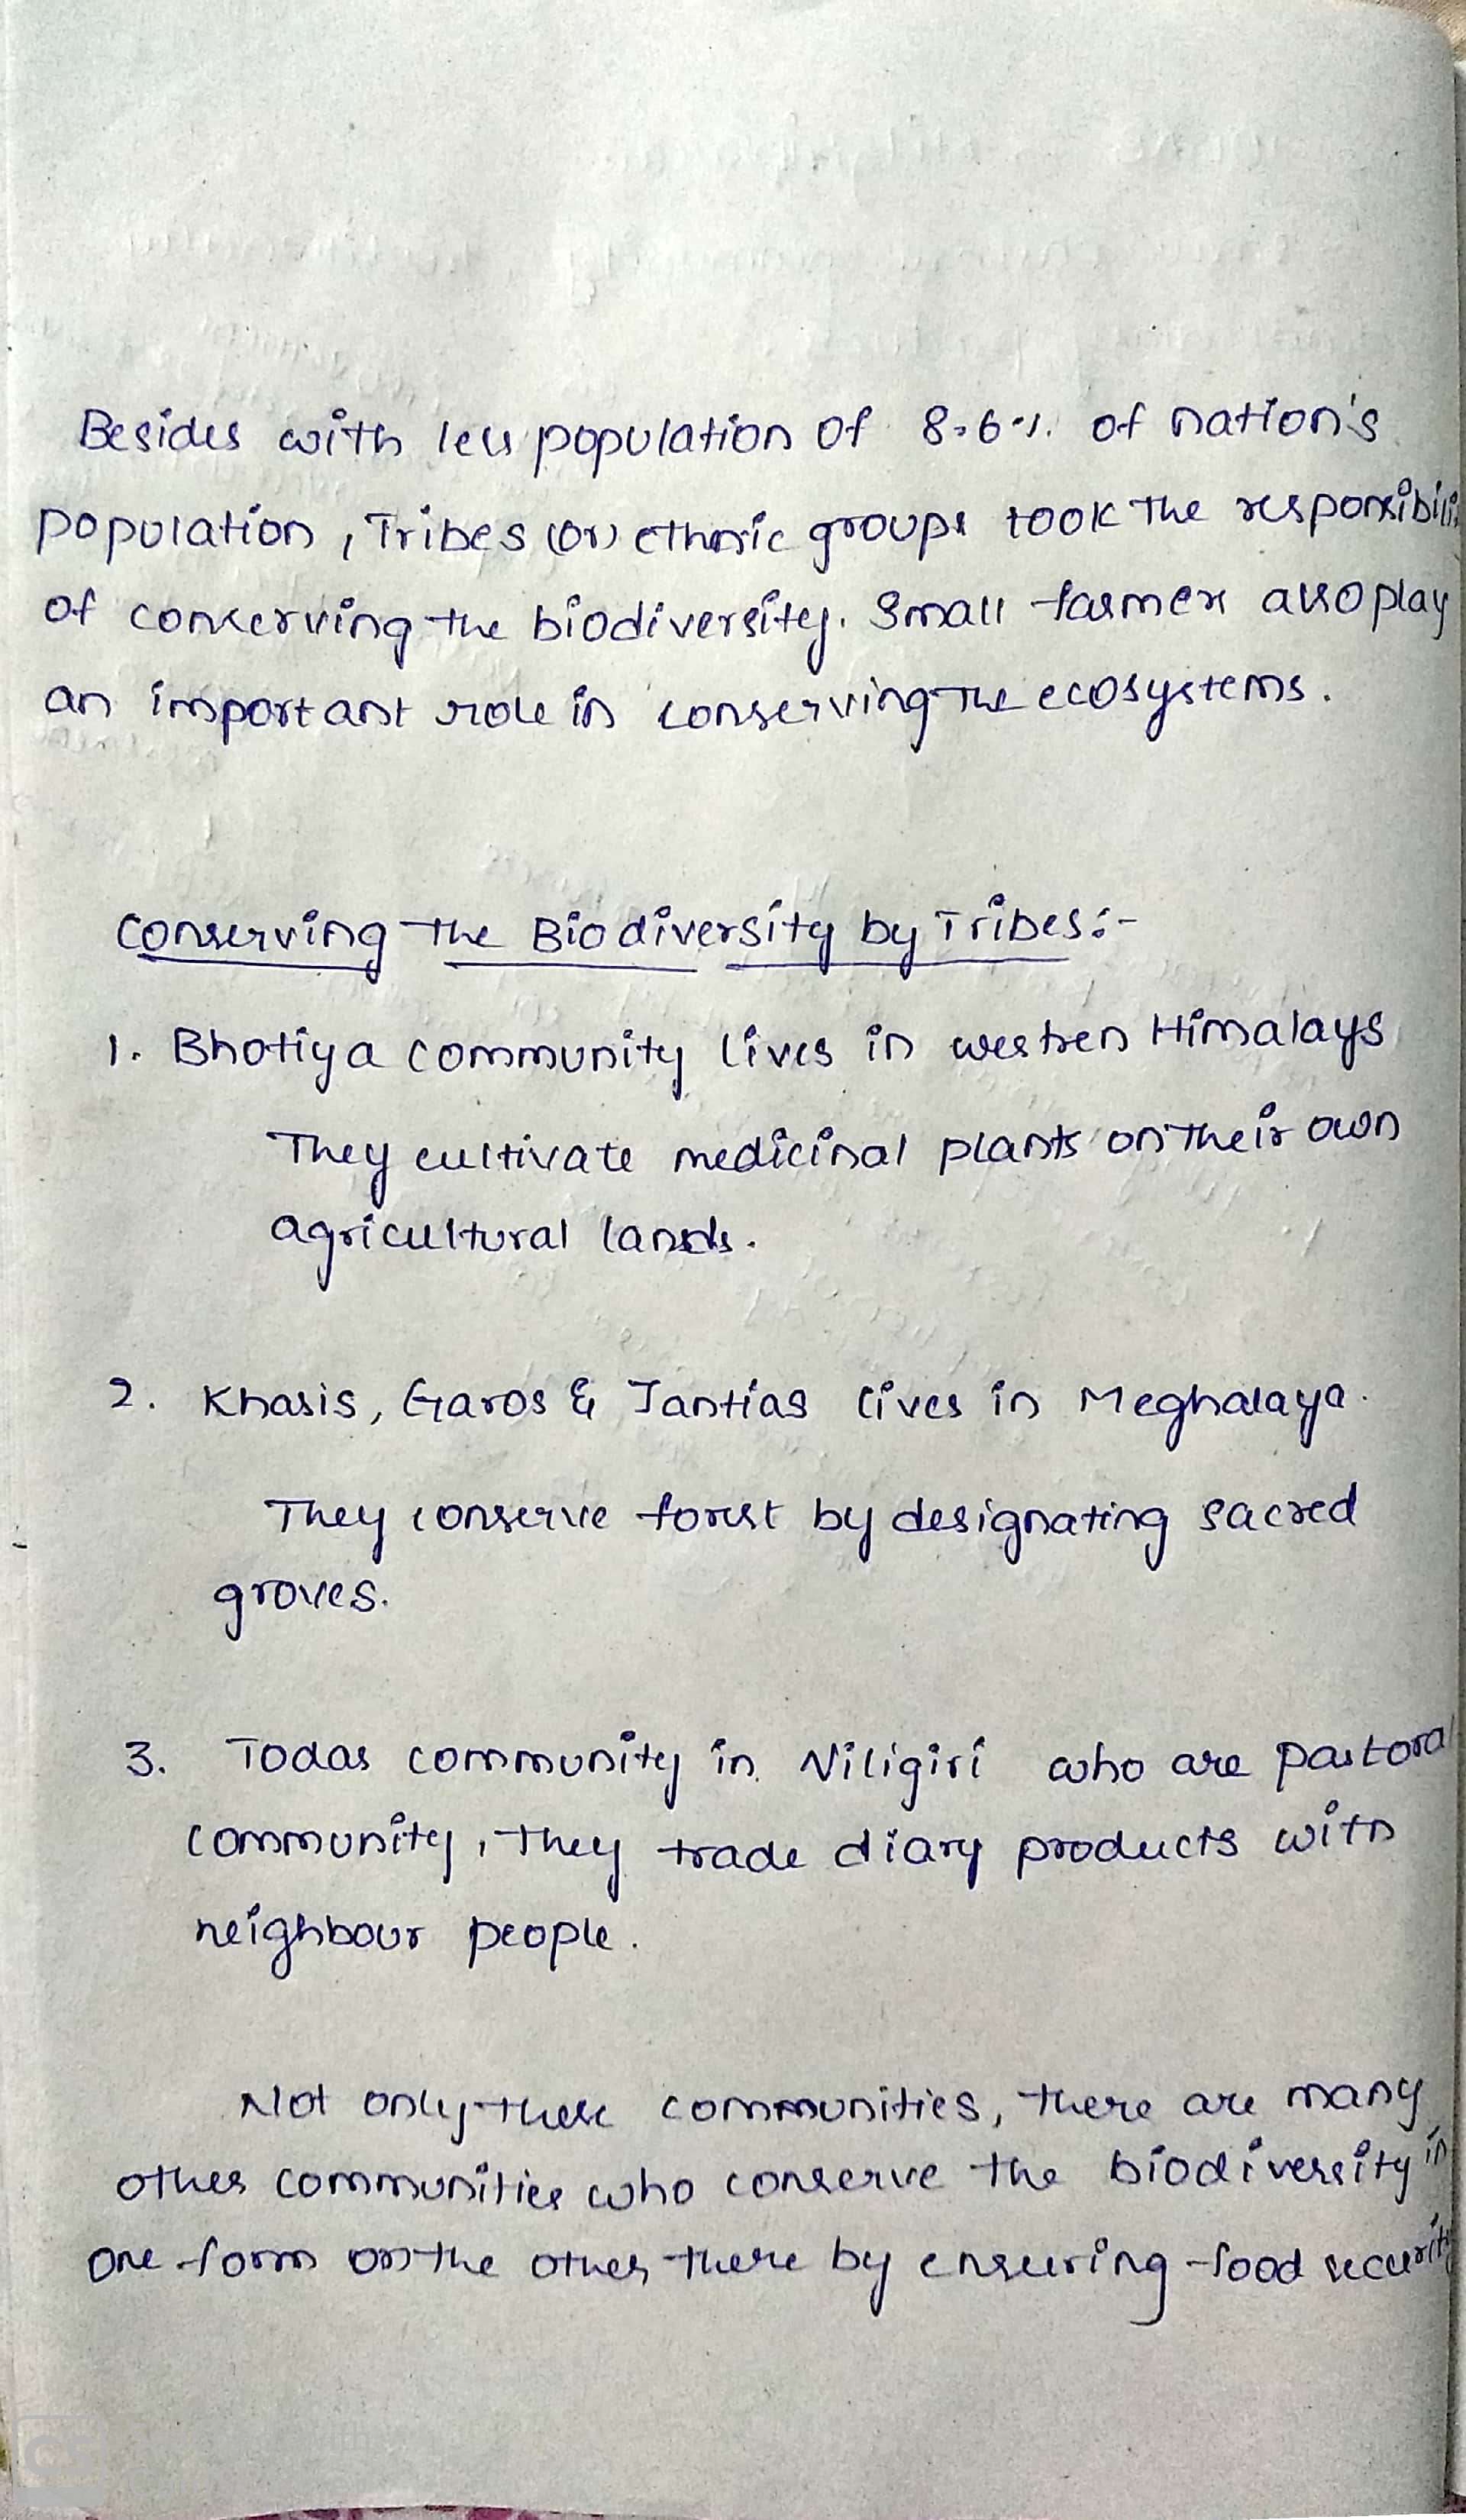 Besides with less population of 8.6%. of nation's
population, Tribes (or) ethnic groups took the responsibili
of conserving the biodiversity. Small farmers also play
an important role in conserving the ecosystems.
Conserving the Biodiversity by Tribes:-
1. Bhotiya community lives in westren Himalays
They cultivate medicinal plants on their own
agricultural lands.
2. Khasis, Garos & Jantias lives in Meghalaya.
They conserve forest by designating sacred
groves.
3. Todas community in Niligiri who are pastoral
community, they trade diary products with
neighbour people.
Not only these communities, there are many
other communities who conserve the biodiversity in
one form or the other there by ensuring food security